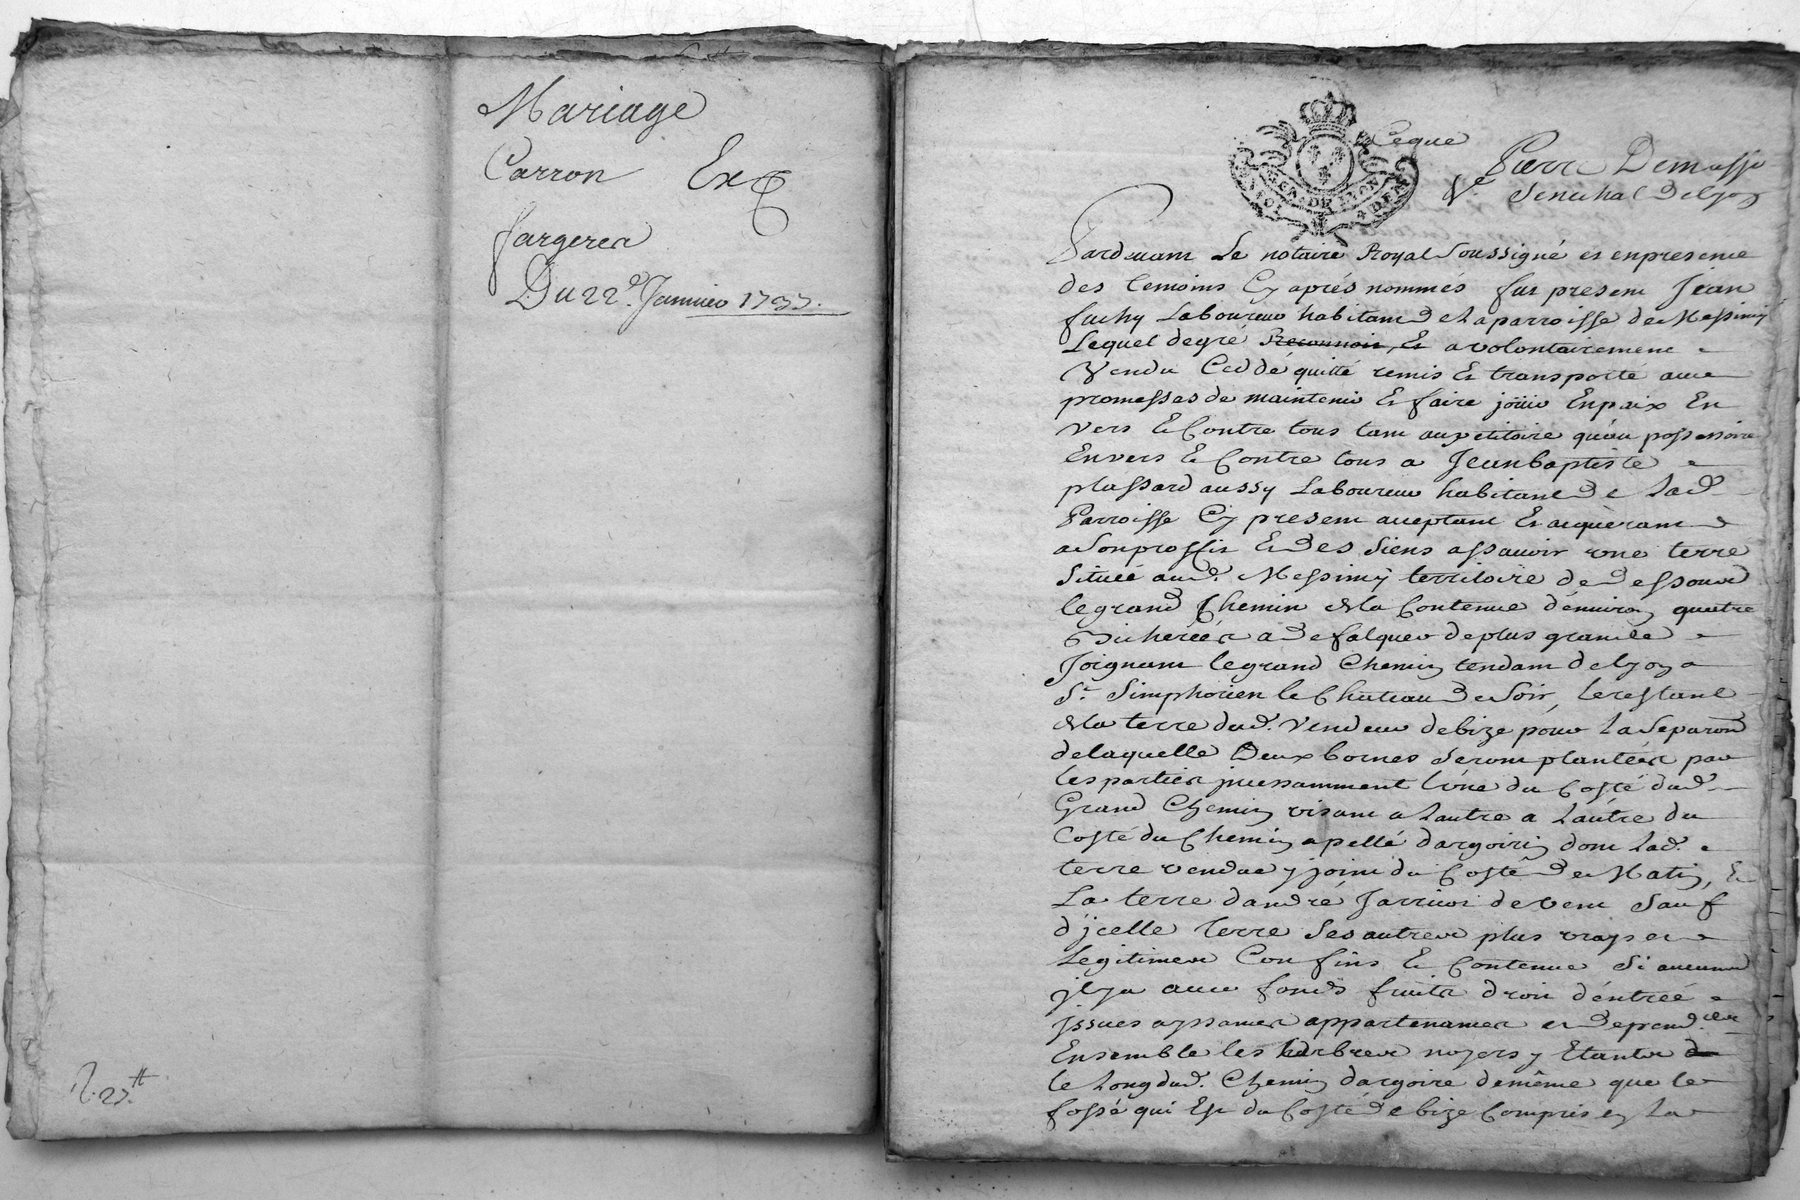 Mariage
Carron Ex
fargeres
Du 22e. Janvier 1737.
R. 27.tt
GEN. DE LYON
Pierre Demasso
Senechal de Lyon
Pardevant Le notaire Royal Soussigné et en presence
des temoins Cy après nommés fut present Jean
Laboureur habitant de La parroisse de Messimy
Lequel de gré Reconnoit, et a volontairement
Vendu Ceddé quitté remis Et transporté avec
promesses de maintenir Et faire joüir En paix En
vers Et Contre tous tant au petitoire qu'au possessoire
Envers Et Contre tous a Jean baptiste
plassard aussy Laboureur habitant de Lad.
Parroisse Cy present acceptant Et acquerant
a Son proffit Et des Siens assavoir une terre
Située aud. Messimy territoire de dessous
le grand Chemin de la Contenue d'environ quatre
Bicherées a de falquer de plus grande
Joignant le grand Chemin tendant de Lyon a
St. Simphorien le Chateau de Soir, le restant
de la terre dud. Vendeur de bize pour La Separon
de laquelle Deux bornes Seront plantées par
les parties incessamment l'une du Costé dud.
Grand Chemin visant a Lautre a Lautre du
Costé du Chemin apellé d'argoire dont Lad.
terre vendue y joint du Costé de Matin, Et
La terre d'andré Jarricot de vent Sauf
d'jcelle terre Ses autres plus vrays et
Legitimes Confins Et Contenue Si aucuns
jl y a avec fonds fruits droit d'entrée
jssues aysances appartenances et depend.ces
Ensemble les harbres noyers y Etants
le Long dud. Chemin d'argoire de même que le
fossé qui Est du Costé de bize Compris En La